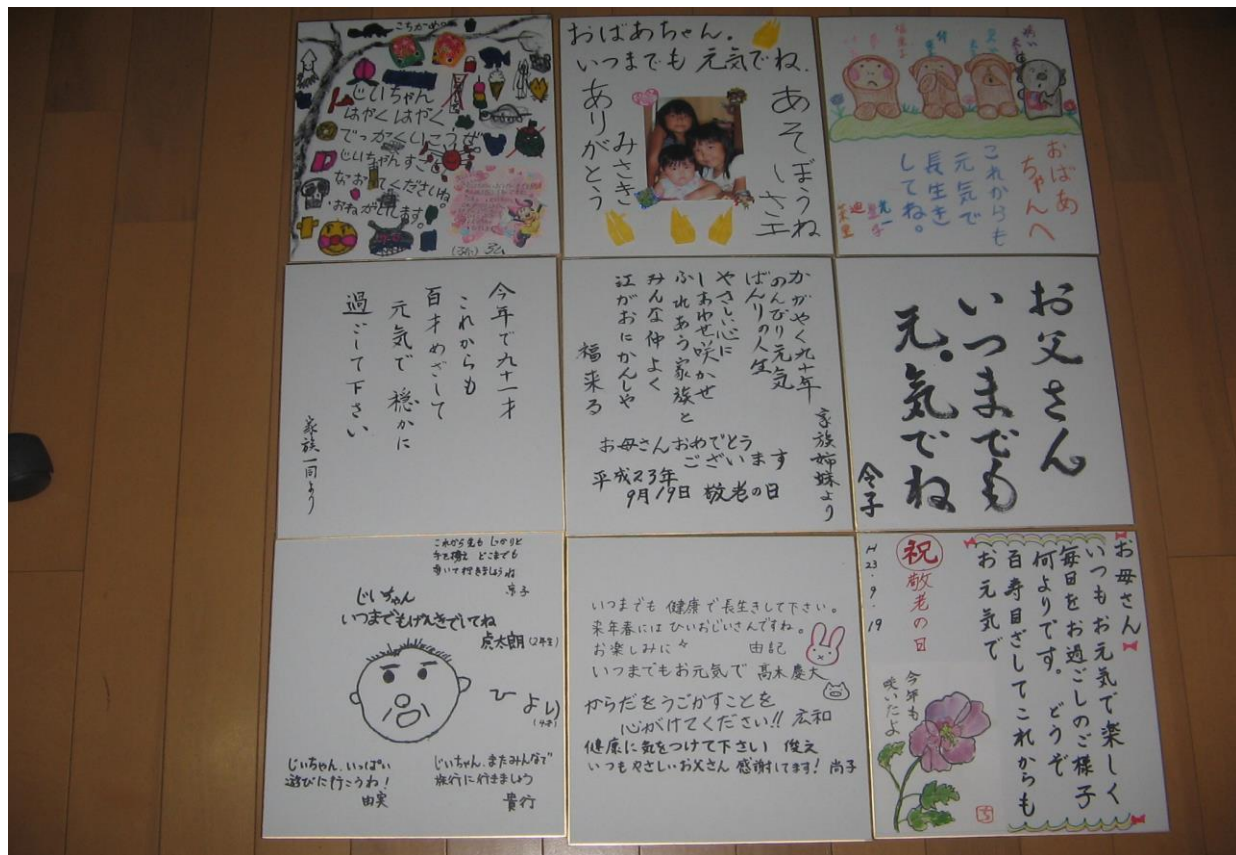 こちかめ
じいちゃん
はやくはやく
でっかくいこうぜ
じいちゃんすごい
なおしてくださいね。
おねがいします。
おばあちゃん。
いつまでも元気でね、
ありがとう
みさき
あそぼうね
おばあ
ちゃんへ
これからも
元気で
長生き
してね。
今年で九十一才
これからも
百才めざして
元気で 穏かに
過ごして下さい
家族一同より
かがやく九十年
のんびり元気
ばんりの人生
やさしい心に
しあわせ咲かせ
ふれあう家族と
みんな仲よく
江がおにかんしゃ
福来る
家族姉妹より
お母さんおめでとう
ございます
平成23年
9月19日 敬老の日
お父さん
いつまでも
元気でね
令子
これから先も しっかりと
手を携え どこまでも
歩いて行きましょうね
じいちゃん
いつまでもげんきでいてね
虎太朗(2年生)
ひより
じいちゃん、いっぱい
遊びに行こうね!
由実
じいちゃん、またみんなで
旅行に行きましょう
貴行
いつまでも 健康で長生きして下さい。
来年春には ひいおじいさんですね。
お楽しみに 由記
いつまでもお元気で 高木慶大
からだをうごかすことを
心がけてください!! 広和
健康に気をつけて下さい 俊之
いつもやさしいお父さん 感謝してます! 尚子
お母さん
いつもお元気で楽しく
毎日をお過ごしのご様子
何よりです。 どうぞ
百寿目ざしてこれからも
お元気で
祝 敬老の日
H23.9.19
今年も
咲いたよ